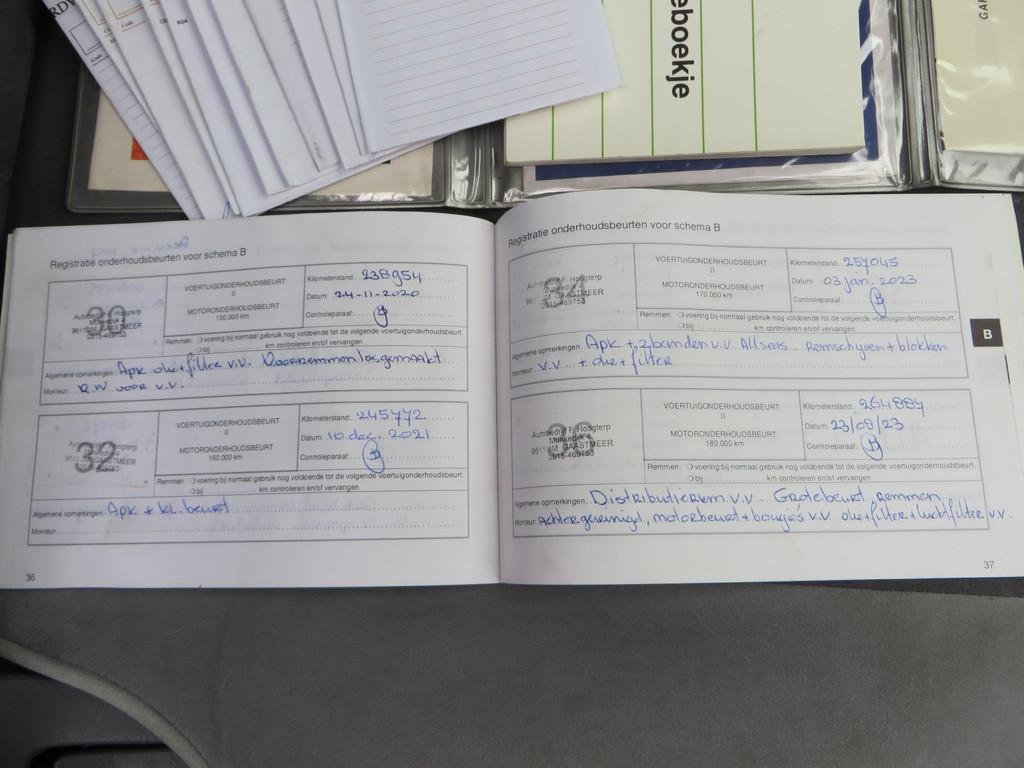 RDW
Code
eboekje
GAR
Registratie onderhoudsbeurten voor schema B
VOERTUIGONDERHOUDSBEURT
II
MOTORONDERHOUDSBEURT
150.000 km
Kilometerstand: 238954
Datum: 24-11-2020
Controleparaaf:
Hoogterp
GAASTMEER
0515-469753
Remmen: voering bij normaal gebruik nog voldoende tot de volgende voertuigonderhoudsbeurt.
bij km controleren en/of vervangen
Algemene opmerkingen: Apk olie+filter v.v. Voorremmen losgemaakt
Monteur: R.W voor v.v.
32
Hoogterp
GAASTMEER
0515-469753
VOERTUIGONDERHOUDSBEURT
II
MOTORONDERHOUDSBEURT
160.000 km
Kilometerstand: 245772
Datum: 10 dec. 2021
Controleparaaf:
Remmen: voering bij normaal gebruik nog voldoende tot de volgende voertuigonderhoudsbeurt.
bij km controleren en/of vervangen
Algemene opmerkingen: Apk + kl. beurt
Monteur:
36
Registratie onderhoudsbeurten voor schema B
F. Hoogterp
GAASTMEER
0515-469753
VOERTUIGONDERHOUDSBEURT
II
MOTORONDERHOUDSBEURT
170.000 km
Kilometerstand: 257045
Datum: 03 jan. 2023
Controleparaaf:
Remmen: voering bij normaal gebruik nog voldoende tot de volgende voertuigonderhoudsbeurt.
bij km controleren en/of vervangen
Algemene opmerkingen: Apk +, 2 banden v.v. All seas - remschijven + blokken
Monteur: v.v. + olie + filter
B
Autobedrijf F. Hoogterp
Munkedyk 4
GAASTMEER
0515-469753
VOERTUIGONDERHOUDSBEURT
II
MOTORONDERHOUDSBEURT
180.000 km
Kilometerstand: 264884
Datum: 23/08/23
Controleparaaf:
Remmen: voering bij normaal gebruik nog voldoende tot de volgende voertuigonderhoudsbeurt.
bij km controleren en/of vervangen
Algemene opmerkingen: Distributieriem v.v. Grote beurt, Remmen,
Monteur: Achter gereinigd, motorbeurt + bougies v.v. olie+filter+luchtfilter v.v.
37